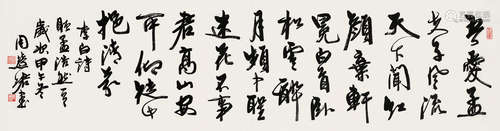 吾愛孟
夫子風流
天下聞紅
顏棄軒
冕白首卧
松雲醉
月頻中聖
迷花不事
君高山安
可仰徒此
挹清芬
李白詩
贈孟浩然
歲次甲午冬
周慧珺書